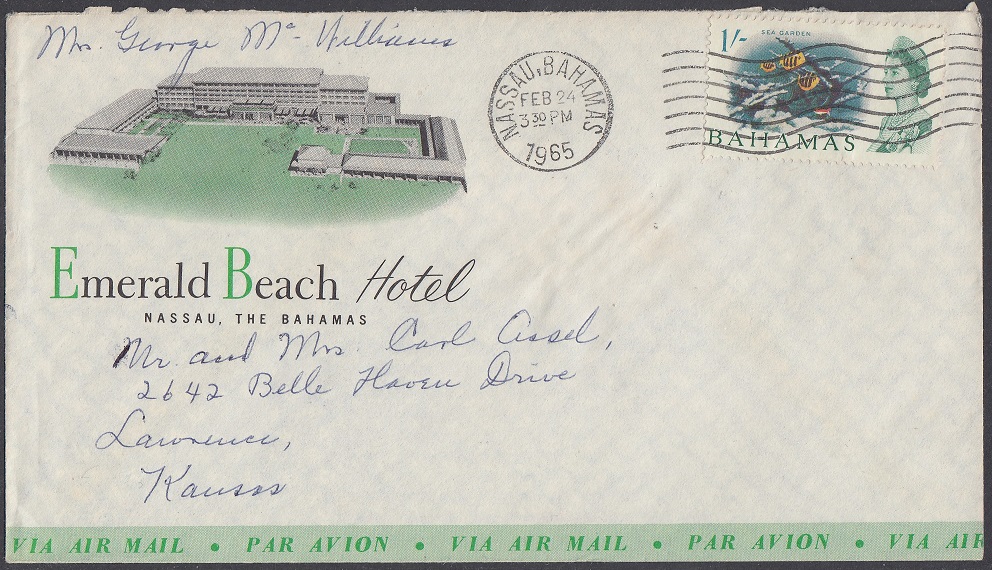 Mrs. George Mc Williams
NASSAU, BAHAMAS
FEB 24
3 30 PM
1965
1/-
SEA GARDEN
BAHAMAS
Emerald Beach Hotel
NASSAU, THE BAHAMAS
Mr. and Mrs. Carl Assel,
2642 Belle Haven Drive
Lawrence,
Kansas
VIA AIR MAIL • PAR AVION • VIA AIR MAIL • PAR AVION • VIA AIR